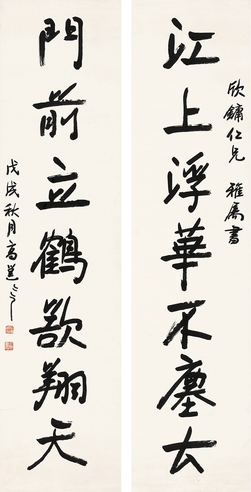 欣鏞仁兄 雅屬書
江上浮華不塵去
門前立鶴歘翔天
戊戌秋月高